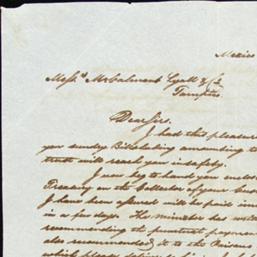 Mexico
Mess.rs McCalmont Lyall & Co
Tampico.
Dear Sirs.
I had this pleasure
you sundry Bills amounting to
truth will reach you in safety.
I now beg to hand you enclos
Treasury on the Collector of your Cus
I have been assured will be paid imm
in a few days. The minister has
recommending the punctual paymen
also recommended it to the
which please